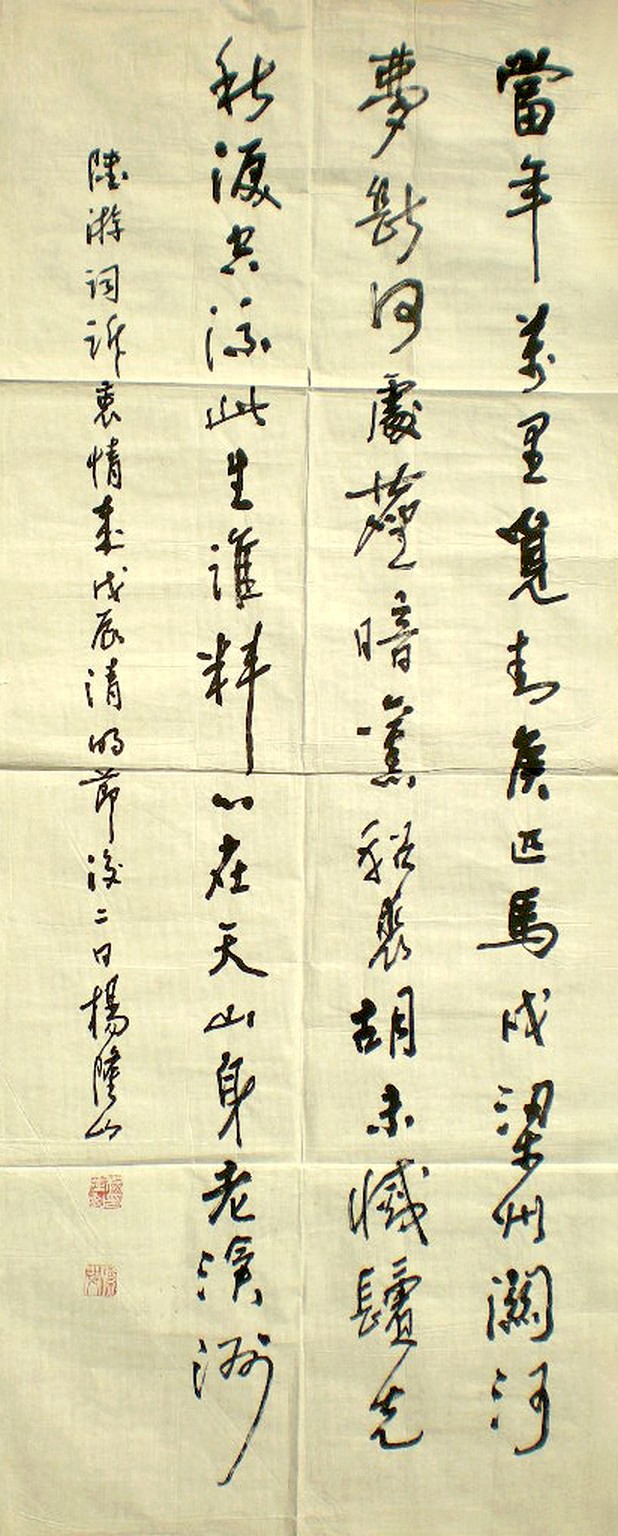 當年萬里覓封侯匹馬戍梁州關河
夢斷何處塵暗舊貂裘胡未滅鬢先
秋淚空流此生誰料心在天山身老滄洲
陸游詞訴衷情書戊辰清明節後二日楊隆山